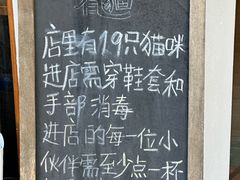 有猫
店里有19只猫咪
进店需穿鞋套和
手部消毒
进店的每一位小
伙伴需至少点一杯